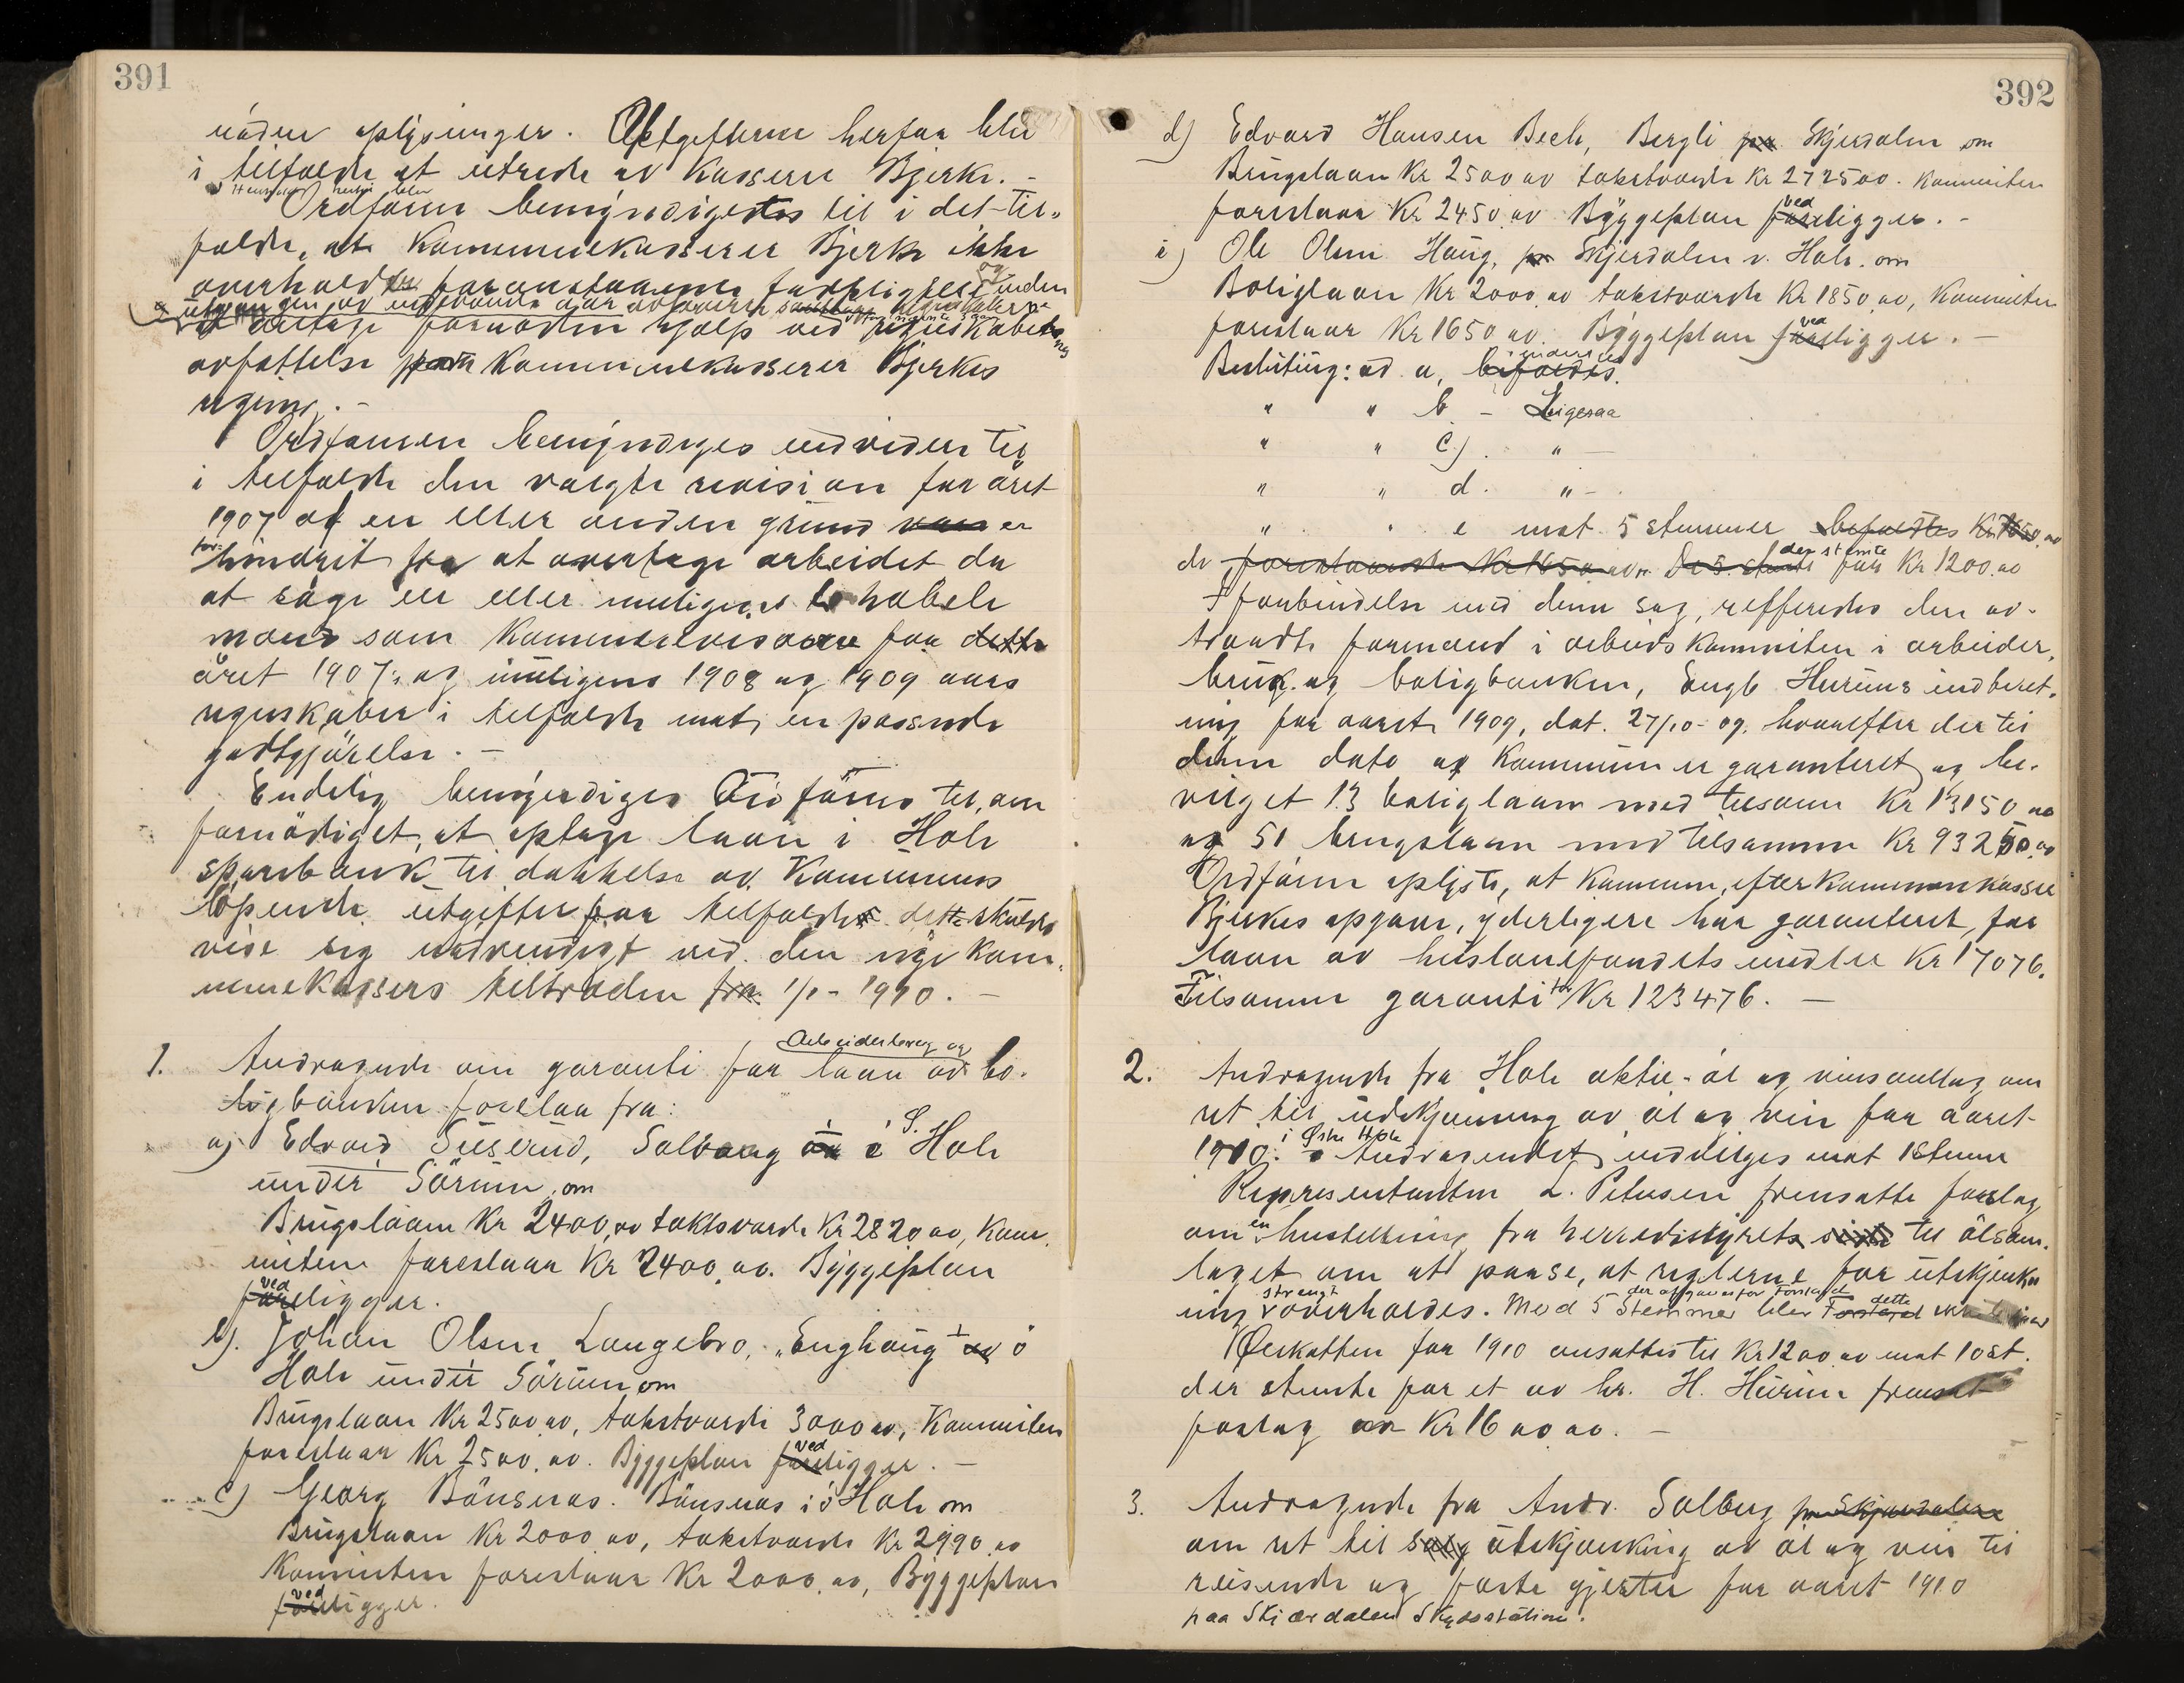 391
uaden oplysninger. Utgifterne herfor blir
i tilfælde at utrede av Kasserer Bjerke. -
Ordføren bemyndigedes til i det til-
fælde, at Kommunekasserer Bjerke ikke
overholder foranstaaende forpligtelse og inden
utgangen av indeværende aar
at antage fornøden hjælp ved regnskabets
avfattelse paa Kommunekasserer Bjerkes
regning. -
Ordføreren bemyndiges endvidere til
i tilfælde den valgte revision for året
1907 af en eller anden grund er
forhindret fra at overtage arbeidet da
at søge en eller muligens to habele
mænd som Kommunerevisorer for
året 1907, og muligens 1908 og 1909 aars
regnskaber i tilfælde mot en passende
godtgjörelse. -
Endelig bemyndiges Ordföres til, om
fornödiget, at optage laan i Hole
sparebank til dækkelse av Kommunens
löpende utgifter for tilfælde dette skulde
vise sig nødvendigt ved den nye Kom-
munekassers tiltræden 1/1 - 1910. -
1. Andragende om garanti for laan av Arbeiderbrug og bo-
ligbanken forelaa fra:
a) Edvard Suserud, Solberg i S. Hole
under Sörum, om
Brugslaan Kr 2400,00 takstværdi Kr 2820 00, Kom-
miteen foreslaar Kr 2400,00. Byggeplan
vedligger.
b). Johan Olsen Langebro, "Enghaug i ö
Hole under Sörum om
Brugslaan Kr 2500,00, takstværdi 3000 00, Kommiteen
foreslaar Kr 2500,00. Byggeplan vedligger. -
c) Georg Bönsnæs. Bönsnæs i ö Hole om
Brugslaan Kr 2000,00, takstværdi Kr 2990,00
Kommiteen foreslaar Kr 2000,00, Byggeplan
vedligger.
392
d) Edvard Hansen Bech, Bergli Skjerdalen om
Brugslaan Kr 2500 00 takstværdi Kr 2725 00. Kommiteen
foreslaar Kr 2450,00 Byggeplan vedligger. -
e) Ole Olsen Haug, Skjerdalen v. Hole. om
Boliglaan Kr 2000,00 takstværdi Kr 1850,00, Kommiteen
foreslaar Kr 1650 00. Byggeplan vedligger. -
Beslutning: ad a, bifaldtes.
" " b - Ligesaa
" " c). " -
" " d. " -
" " e mot 5 stemmer befaldtes Kr 1650,00
de foreslaaede Kr 1650,00. De 5 der stemte for Kr 1200,00
I forbindelse med denne sag, refferertes den av-
traadte formand i arbeids Kommiteen i arbeider,
brug. og boligbanken, Engb. Hurums indberet-
ning for aaret 1909, dat. 27/10-09. hvorefter der til
denne dato af Kommunen er garanteret og be-
vilget 13 boliglaan med tilsamm Kr 13150 00
og 51 brugslaan med tilsammen Kr 93250,00
Ordfören oplyste, at Kommunen, efter Kommunekasserer
Bjerkes opgave, yderligere har garanteret, for
laan av huslaanefondets midler Kr 17076.
Tilsammen garanti for Kr 123476. -
2. Andragende fra Hole aktie-öl og vinsamlag om
ret til udskjenkning av öl og vin for aaret
1910. i Østre Hole Andragendet indvilges mot 1 stemme
Representanten L. Petersen fremsatte forslag
om en henstilling fra herredsstyrets side til ölsam-
laget om at paase, at reglerne for utskjenkn-
ing strengt overholdes. Med 5 Stemmer der afgaves for Forslaget blev dette ikke
Øeskatten for 1910 ansattes til Kr 1200,00 mot 10 st.
der stemte for et av hr. H. Hurum fremsat
forslag Kr 1600.00. -
3. Andragende fra Andr. Solberg paa Skjerdalen
om ret til salg utskjenkning av öl og vin til
reisende og faste gjester for aaret 1910
paa Skjærdalen Skydsstation.